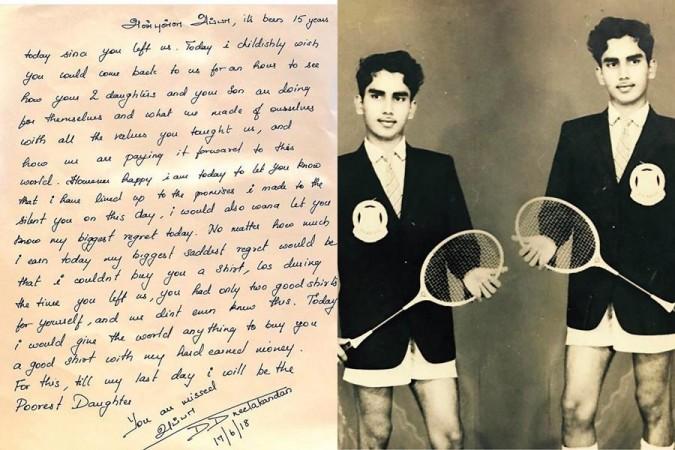 அன்புள்ள அப்பா, its been 15 years
today since you left us. Today i childishly wish
you could come back to us for an hour to see
how your 2 daughters and your son are doing
for themselves and what we made of ourselves
with all the values you taught us, and
how we are paying it forward to this
world. However happy i am today to let you know
that i have lived up to the promises i made to the
silent you on this day, i would also wana let you
know my biggest regret today. No matter how much
i earn today my biggest saddest regret would be
that i couldn't buy you a shirt, Cos during
the time you left us, you had only two good shirts
for yourself, and we dint even knew this. Today
i would give the world anything to buy you
a good shirt with my hard earned money.
For this, till my last day i will be the
Poorest Daughter
You are missed
அப்பா
DDneelakandan
17/6/18